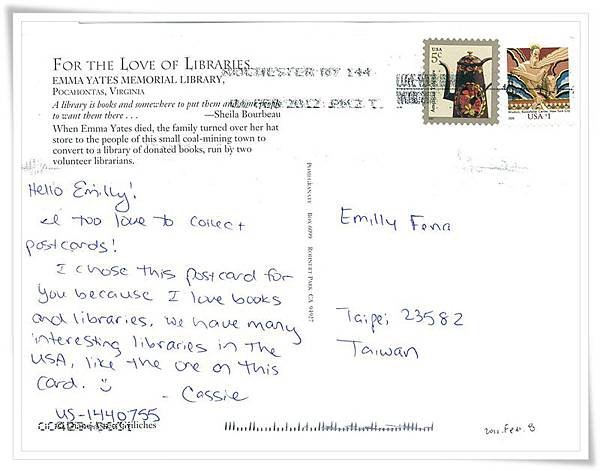 FOR THE LOVE OF LIBRARIES
EMMA YATES MEMORIAL LIBRARY,
POCAHONTAS, VIRGINIA
A library is books and somewhere to put them and
to want them there . . . —Sheila Bourbeau
When Emma Yates died, the family turned over her hat
store to the people of this small coal-mining town to
convert to a library of donated books, run by two
volunteer librarians.
ROCHESTER NY 144
2012 PM 2 T
USA
5c
USA $1
Hello Emilly!
I too love to collect
postcards!
I chose this postcard for
you because I love books
and libraries. We have many
interesting libraries in the
USA, like the one on this
card.
- Cassie
US-1440755
POMEGRANATE BOX 6099 ROHNERT PARK, CA 94927
Emilly Fenn
Taipei 23582
Taiwan
Feb. 8